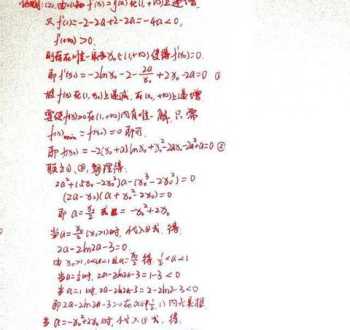 证明:(2). 由(1)知 f'(x)=g(x)在(1,+∞)上递增
又 f'(1)=-2-2a+2-2a=-4a<0,
f'(+∞)>0.
则存在唯一 x₀∈(1,+∞) 使得 f'(x₀)=0.
即 f'(x₀)=-2lnx₀-2-2a/x₀+2x₀-2a=0 ①
故f(x)在(1,x₀)上递减, 在(x₀,+∞)上递增
要使f(x)≥0在(1,+∞)内有唯一解, 只需
f(x)min=f(x₀)=0即可.
即 f(x₀)=-2(x₀+a)lnx₀+x₀²-2ax₀-2a²+a=0 ②
联立①,②, 整理得
2a²+(5x₀-2x₀²)a-(x₀³-2x₀²)=0
(2a-x₀)(a+x₀²-2x₀)=0
即 a=x₀/2 或 a=-x₀²+2x₀
当a=x₀/2(x₀>1)时, 代入①式, 得
2a-2ln2a-3=0.
由 x₀>1,0<a<1 且a=x₀/2 得 1/2<a<1
当a=1/2时, 2a-2ln2a-3=1-3<0
当a=1时 2a-2ln2a-3=2-2ln2-3<0
即2a-2ln2a-3=0在a∈(1/2,1)内无实根
当a=-x₀²+2x₀时, 代入①式, 得.